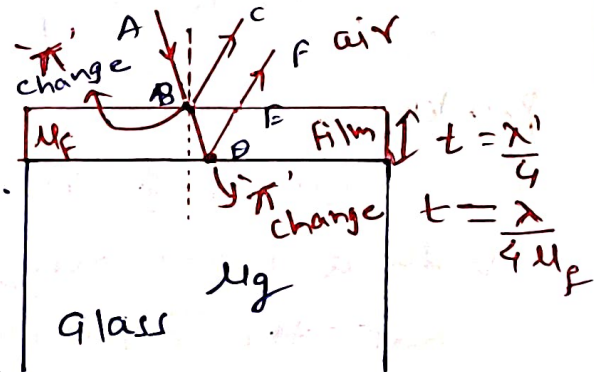 A
C
F
air
'π'
change
B
E
μf
Film
t = λ'/4
D
'π'
change
t = λ/4μf
μg
Glass